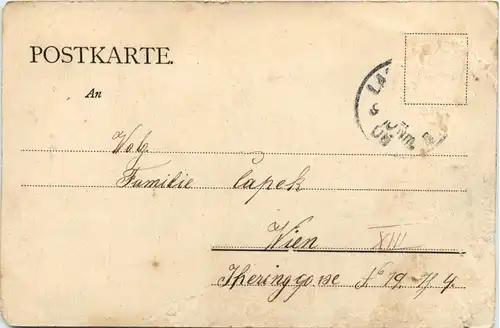 POSTKARTE.
An
Wolg
Familie Čapek
Wien XIII
Theringgasse No 19. II/4.